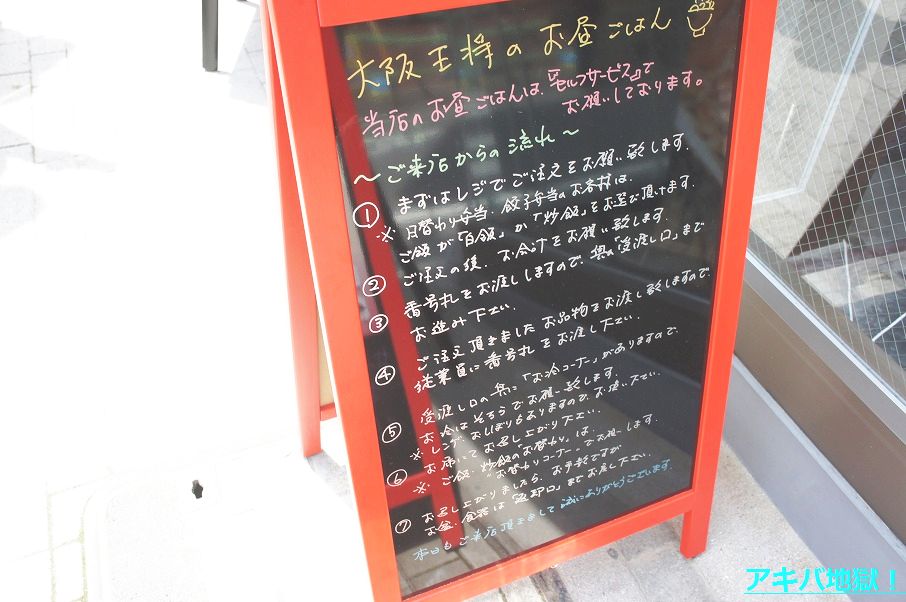 大阪王将のお昼ごはん
当店のお昼ごはんは『セルフサービス』で
お願いしております。
～ご来店からの流れ～
① まずはレジでご注文をお願い致します。
※ 日替わり弁当、餃子弁当のお客様は、
ご飯が「白飯」か「炒飯」をお選び頂けます。
② ご注文の後、お会計をお願い致します。
③ 番号札をお渡ししますので、奥の「受渡し口」まで
お進み下さい。
④ ご注文頂きましたお品物をお渡し致しますので、
従業員に番号札をお渡し下さい。
⑤ 受渡し口の奥に「お冷コーナー」がありますので、
お冷はそちらでお願い致します。
※ レンゲ、おしぼりもありますので、お使い下さい。
⑥ お席にてお召し上がり下さい。
※ ご飯、炒飯の「お替わり」は、
"お替わりコーナー"でお願いします。
⑦ お召し上がりましたら、お手数ですが
お盆、食器は「返却口」までお戻し下さい。
本日もご来店頂きまして誠にありがとうございます。
アキバ地獄！